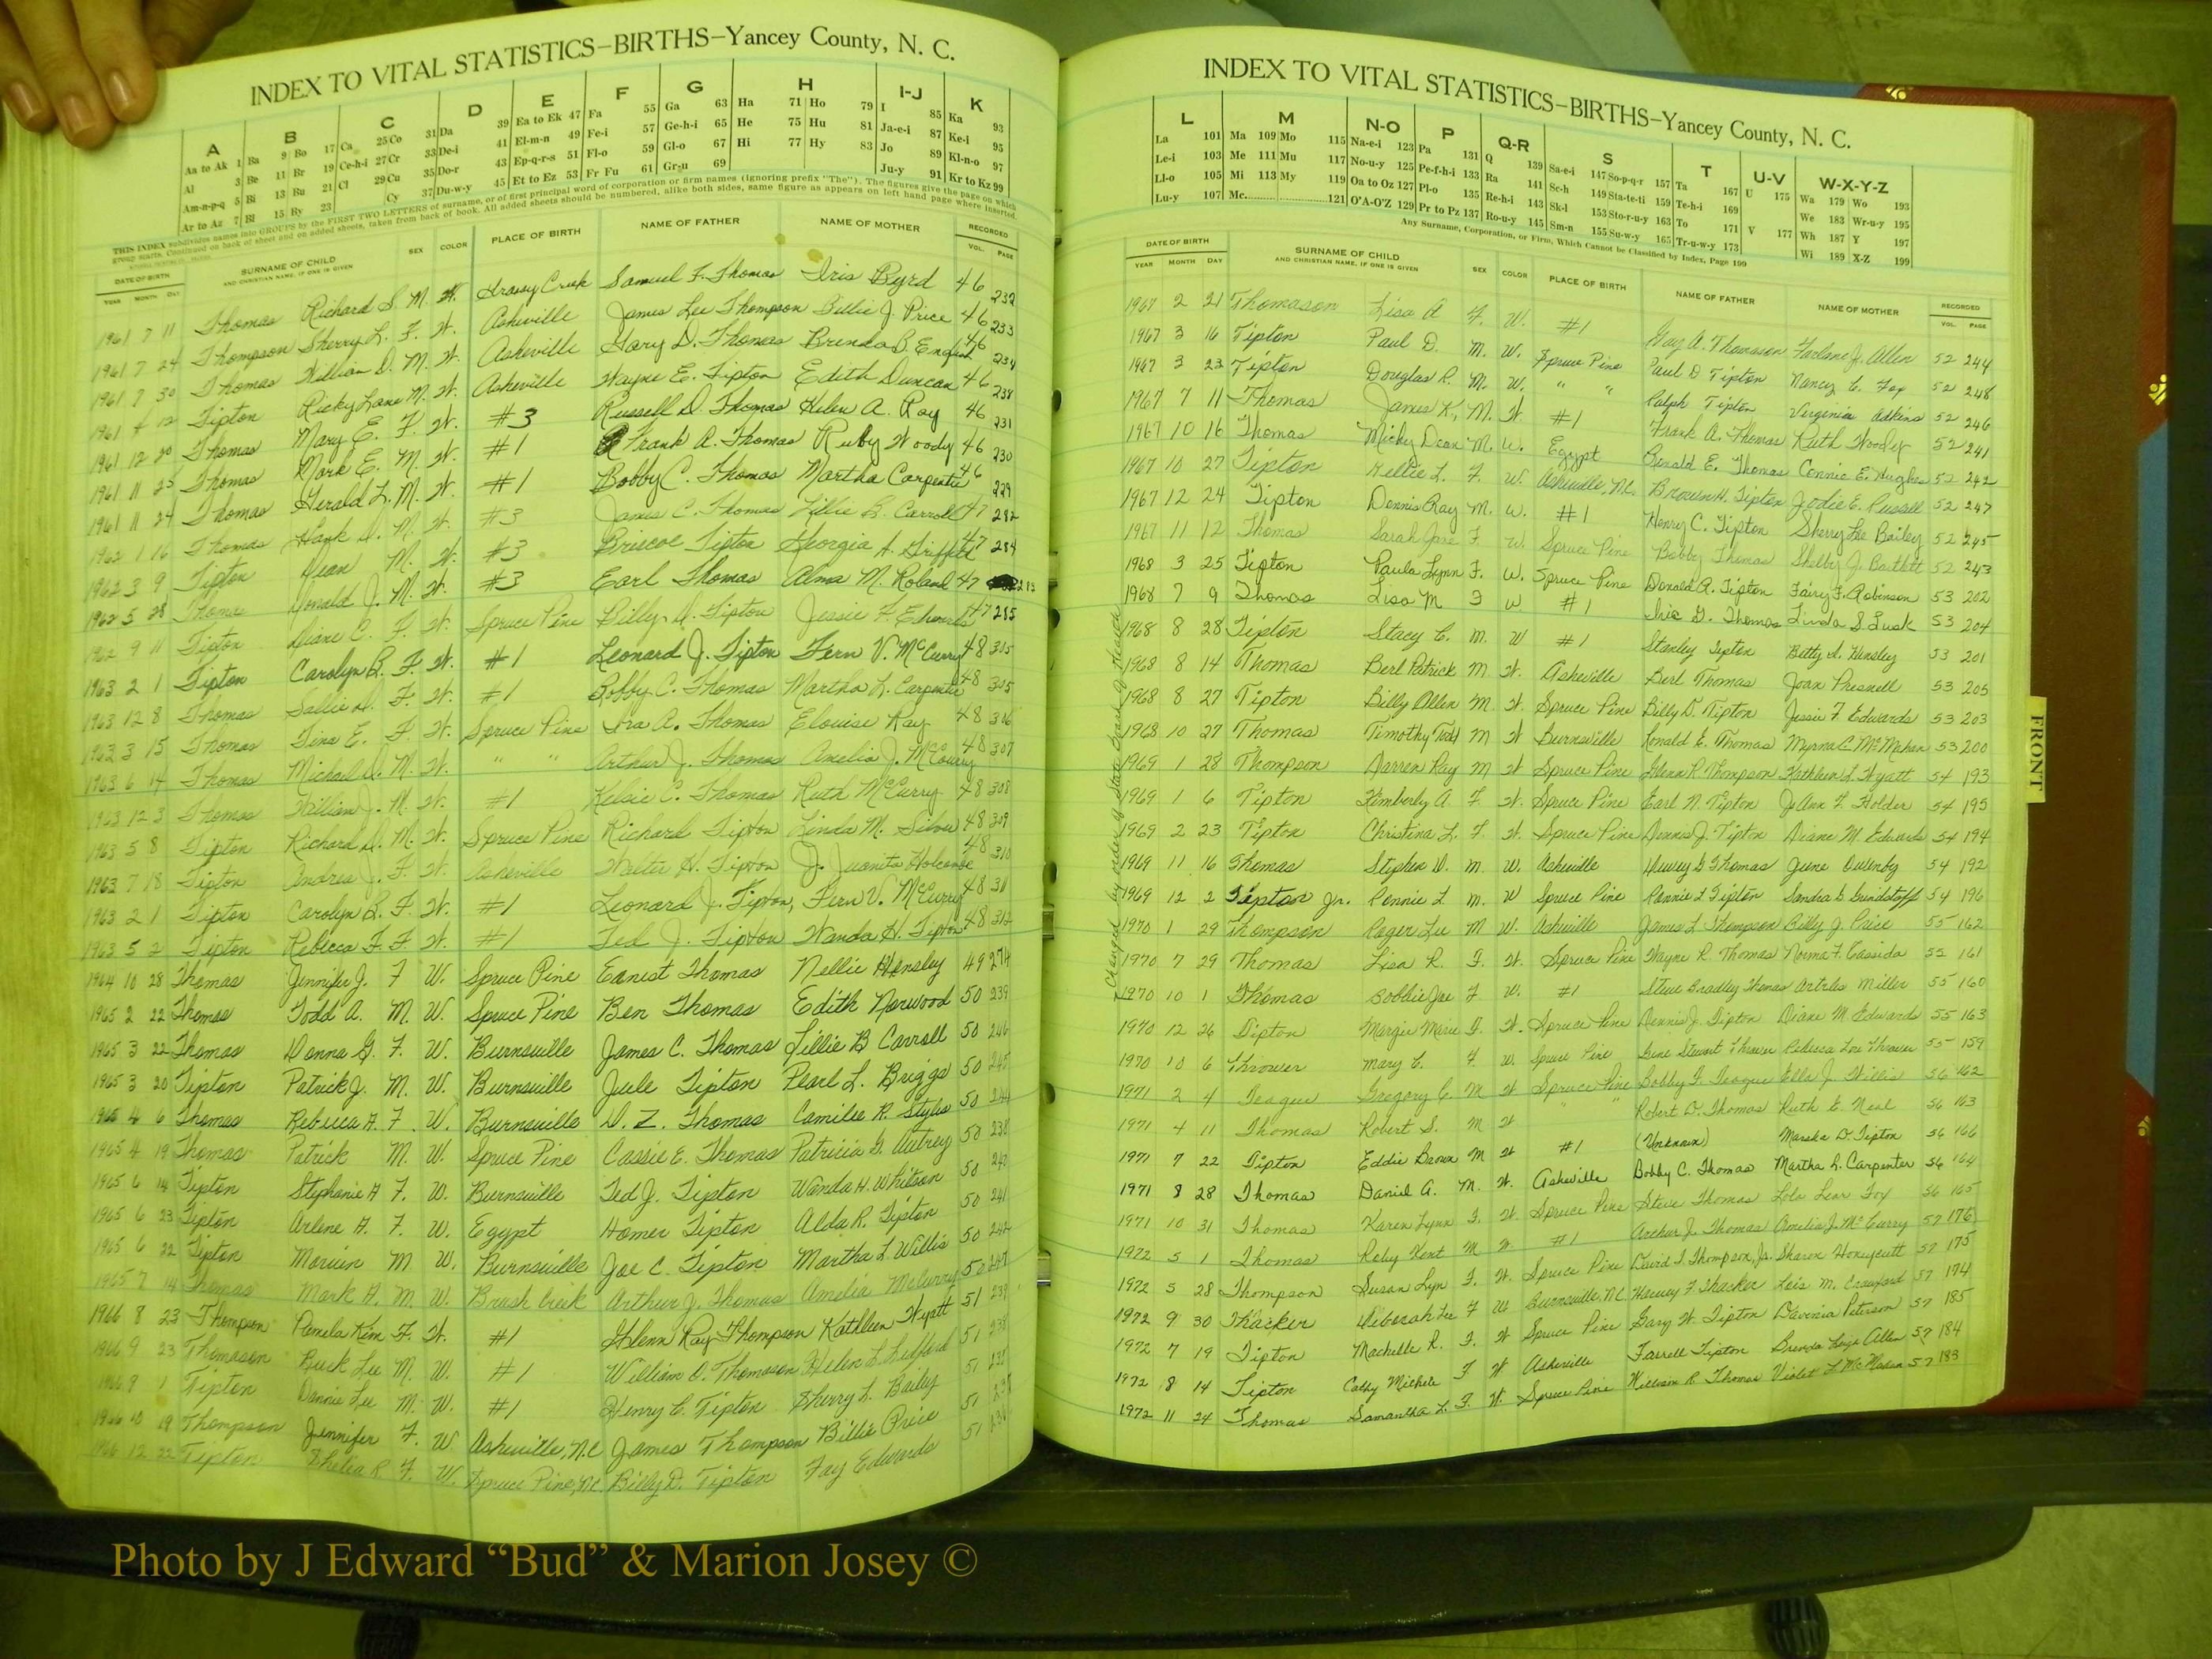 INDEX TO VITAL STATISTICS–BIRTHS–Yancey County, N. C.
A B C D E F G H I-J K
Aa to Ak 1 Ba 9 Bo 17 Ca 25 Co 31 Da 39 Ea to Ek 47 Fa 55 Ga 63 Ha 71 Ho 79 I 85 Ka 93
Al 3 Be 11 Br 19 Ce-h-i 27 Cr 33 De-i 41 El-m-n 49 Fe-i 57 Ge-h-i 65 He 75 Hu 81 Ja-e-i 87 Ke-i 95
Am-n-p-q 5 Bi 13 Bu 21 Cl 29 Cu 35 Do-r 43 Ep-q-r-s 51 Fl-o 59 Gl-o 67 Hi 77 Hy 83 Jo 89 Kl-n-o 97
Ar to Az 7 Bl 15 By 23 Cy 37 Du-w-y 45 Et to Ez 53 Fr Fu 61 Gr-u 69 Ju-y 91 Kr to Kz 99
THIS INDEX subdivides names into GROUPS by the FIRST TWO LETTERS of surname, or of first principal word of corporation or firm names (ignoring prefix "The"). The figures give the page on which
group starts. Continued on back of sheet and on added sheets, taken from back of book. All added sheets should be numbered, alike both sides, same figure as appears on left hand page where inserted.
DATE OF BIRTH SURNAME OF CHILD SEX COLOR PLACE OF BIRTH NAME OF FATHER NAME OF MOTHER RECORDED
YEAR MONTH DAY AND CHRISTIAN NAME, IF ONE IS GIVEN VOL. PAGE
1961 7 11 Thomas Richard S. M. W. Grassy Creek Samuel F. Thomas Iris Byrd 46 232
1961 7 24 Thompson Sherry L. F. W. Asheville James Lee Thompson Billie J. Price 46 233
1961 7 30 Thomas William D. M. W. Asheville Gary D. Thomas Brenda B. English 46 234
1961 12 Tipton Ricky Lane M. W. Asheville Wayne E. Tipton Edith Duncan 46 238
1961 12 20 Thomas Mary E. F. W. #3 Russell D. Thomas Helen A. Ray 46 231
1961 11 25 Thomas Mark E. M. W. #1 Frank A. Thomas Ruby Woody 46 230
1961 11 24 Thomas Gerald L. M. W. #1 Bobby C. Thomas Martha Carpenter 46 229
1962 1 16 Thomas Hank D. M. W. #3 James C. Thomas Lillie B. Carroll 47 282
1962 3 9 Tipton Dean M. W. #3 Briscoe Tipton Georgia A. 47 284
1962 5 28 Thomas Donald J. M. W. #3 Earl Thomas Alma M. Roland 47
1962 9 11 Tipton Diane C. F. W. Spruce Pine Billy D. Tipton Jessie F. Edwards 47 285
1963 2 1 Tipton Carolyn B. F. W. #1 Leonard J. Tipton Fern V. McCurry 48 315
1963 12 8 Thomas Sallie D. F. W. #1 Bobby C. Thomas Martha L. Carpenter 48 305
1963 3 15 Thomas Tina E. F. W. Spruce Pine Ira A. Thomas Elouise Ray 48 306
1963 6 14 Thomas Michael D. M. W. " " Arthur J. Thomas Amelia J. McCurry 48 307
1963 12 3 Thomas William J. M. W. #1 Kelsie C. Thomas Ruth McCurry 48 308
1963 5 8 Tipton Richard D. M. W. Spruce Pine Richard Tipton Linda M. Silver 48 309
1963 7 18 Tipton Andrea J. F. W. Asheville Walter H. Tipton J. Juanita Holcombe 48 310
1963 2 1 Tipton Carolyn B. F. W. #1 Leonard J. Tipton, Fern V. McCurry 48 311
1963 5 2 Tipton Rebecca F. F. W. #1 Ted J. Tipton Wanda H. Tipton 48 312
1964 10 28 Thomas Jennifer J. F W. Spruce Pine Earnest Thomas Nellie Hensley 49 274
1965 2 22 Thomas Todd A. M. W. Spruce Pine Ben Thomas Edith Norwood 50 239
1965 3 22 Thomas Donna G. F. W. Burnsville James C. Thomas Lillie B Carroll 50 246
1965 3 20 Tipton Patrick J. M. W. Burnsville Jule Tipton Pearl L. Briggs 50 245
1965 4 6 Thomas Rebecca A. F. W. Burnsville D. Z. Thomas Camilie R. Styles 50 244
1965 4 19 Thomas Patrick M. W. Spruce Pine Cassie E. Thomas Patricia G. Autrey 50 238
1965 6 14 Tipton Stephanie A F. W. Burnsville Ted J. Tipton Wanda H. Whitson 50 240
1965 6 23 Tipton Arlene A. F. W. Egypt Homer Tipton Alda R. Tipton 50 241
1965 6 22 Tipton Marvin M W. Burnsville Joe C. Tipton Martha L Willis 50 242
1965 7 14 Thomas Mark A. M. W. Brush Creek Arthur J. Thomas Amelia McCurry 50 247
1966 8 23 Thompson Pamela Kim F. W. #1 Glenn Ray Thompson Kathleen Wyatt 51
1966 9 23 Thomason Buck Lee M. W. #1 William O. Thomason Helen L. Ledford 51 238
1966 9 1 Tipton Dennis Lee M. W. #1 Henry C. Tipton Sherry L. Baily 51
1966 10 19 Thompson Jennifer F. W. Asheville, N.C James Thompson Billie Price 51
1966 12 22 Tipton Shelia R F. W. Spruce Pine, N.C. Billy D. Tipton Fay Edwards 51
INDEX TO VITAL STATISTICS–BIRTHS–Yancey County, N. C.
L M N-O P Q-R S T U-V W-X-Y-Z
La 101 Ma 109 Mo 115 Na-e-i 123 Pa 131 Q 139 Sa-e-i 147 So-p-q-r 157 Ta 167 U 175 Wa 179 Wo 193
Le-i 103 Me 111 Mu 117 No-u-y 125 Pe-f-h-i 133 Ra 141 Sc-h 149 Sta-te-ti 159 Te-h-i 169 We 183 Wr-u-y 195
Ll-o 105 Mi 113 My 119 Oa to Oz 127 Pl-o 135 Re-h-i 143 Sk-l 153 Sto-r-u-y 163 To 171 V 177 Wh 187 Y 197
Lu-y 107 Mc 121 O'A-O'Z 129 Pr to Pz 137 Ro-u-y 145 Sm-n 155 Su-w-y 165 Tr-u-w-y 173 Wi 189 X-Z 199
Any Surname, Corporation, or Firm, Which Cannot be Classified by Index, Page 199
DATE OF BIRTH SURNAME OF CHILD SEX COLOR PLACE OF BIRTH NAME OF FATHER NAME OF MOTHER RECORDED
YEAR MONTH DAY AND CHRISTIAN NAME, IF ONE IS GIVEN VOL. PAGE
1967 2 21 Thomason Lisa A F. W. #1 Gay A. Thomason Farlane J. Allen 52 244
1967 3 16 Tipton Paul D. M. W. Spruce Pine Paul D Tipton Nancy C. Fox 52 248
1967 3 23 Tipton Douglas R. M. W. " " Ralph Tipton Virginia Adkins 52 246
1967 7 11 Thomas James K, M. W #1 Frank A. Thomas Ruth Woody 52 241
1967 10 16 Thomas Micky Dean M. W. Egypt Ronald E. Thomas Connie E. Hughes 52 242
1967 10 27 Tipton Kellie L. F. W. Asheville, N.C. Brown H. Tipton Jodie E. Russell 52 247
1967 12 24 Tipton Dennis Ray M. W. #1 Henry C. Tipton Sherry Lee Bailey 52 245
1967 11 12 Thomas Sarah Jane F. W. Spruce Pine Bobby Thomas Shelby J. Bartlett 52 243
1968 3 25 Tipton Paula Lynn F. W. Spruce Pine Donald A. Tipton Fairy F. Robinson 53 202
1968 7 9 Thomas Lisa M F W #1 D. Thomas Linda S. Lusk 53 204
1968 8 28 Tipton Stacy C. M. W #1 Stanley Tipton Betty L. Hensley 53 201
1968 8 14 Thomas Berl Patrick M W. Asheville Berl Thomas Joan Presnell 53 205
1968 8 27 Tipton Billy Allen M W. Spruce Pine Billy D. Tipton Jessie F Edwards 53 203
1968 10 27 Thomas Timothy Todd M W Burnsville Ronald E. Thomas Myrna C. McMahan 53 200
1969 1 28 Thompson Darren Ray M W Spruce Pine Glenn R Thompson Kathleen L. Wyatt 54 193
1969 1 6 Tipton Kimberly A. F. W. Spruce Pine Earl N. Tipton Jo Ann F. Holder 54 195
1969 2 23 Tipton Christina L. F. W. Spruce Pine Dennis J. Tipton Diane M. Edwards 54 194
1969 11 16 Thomas Stephen D. M. W. Asheville Dewey G Thomas June Ballenby 54 192
1969 12 2 Tipton Jr. Ronnie L M. W Spruce Pine Ronnie L Tipton Sandra S. Grindstaff 54 196
1970 1 29 Thompson Roger Lee M W. Asheville James L Thompson Billy J. Price 55 162
1970 7 29 Thomas Lisa R. F. W. Spruce Pine Wayne R. Thomas Norma F. Cassida 55 161
1970 10 1 Thomas Bobbie Joe F W. #1 Steve Bradley Thomas Artrles Miller 55 160
1970 12 26 Tipton Margie Marie F. W. Spruce Pine Dennis J. Tipton Diane M. Edwards 55 163
1970 10 6 Thrower Mary E. F. W. Spruce Pine Gene Stewart Thrower Rebecca Lou Thrower 55 159
1971 2 4 Teague Gregory C. M W Spruce Pine Bobby F. Teague Ella J. Willis 56 162
1971 4 11 Thomas Robert S. M W " Robert D. Thomas Ruth E. Neal 56 163
1971 7 22 Tipton Eddie Brown M W #1 (Unknown) Marska D. Tipton 56 166
1971 8 28 Thomas Daniel G. M. W. Asheville Bobby C. Thomas Martha L. Carpenter 56 164
1971 10 31 Thomas Karen Lynn F. W. Spruce Pine Steve Thomas Lola Lear Fox 56 165
1972 5 1 Thomas Roby Kent M W. #1 Archer J. Thomas Amelia J. McCurry 57 176
1972 5 28 Thompson Susan Lyn F. W. Spruce Pine David T. Thompson, Jr. Sharon Honeycutt 57 175
1972 9 30 Thacker Deborah Lee F W Burnsville, N.C. Harvey F Thacker Lois M. Crawford 57 174
1972 7 19 Tipton Machelle R. F. W Spruce Pine Gary W. Tipton Davenia Peterson 57 185
1972 8 14 Tipton Cathy Michele F W Asheville Farrell Tipton Brenda Allen 57 184
1972 11 24 Thomas Samantha L. F. W. Spruce Pine William R Thomas Violet L McMahan 57 183
FRONT
Photo by J Edward “Bud” & Marion Josey ©